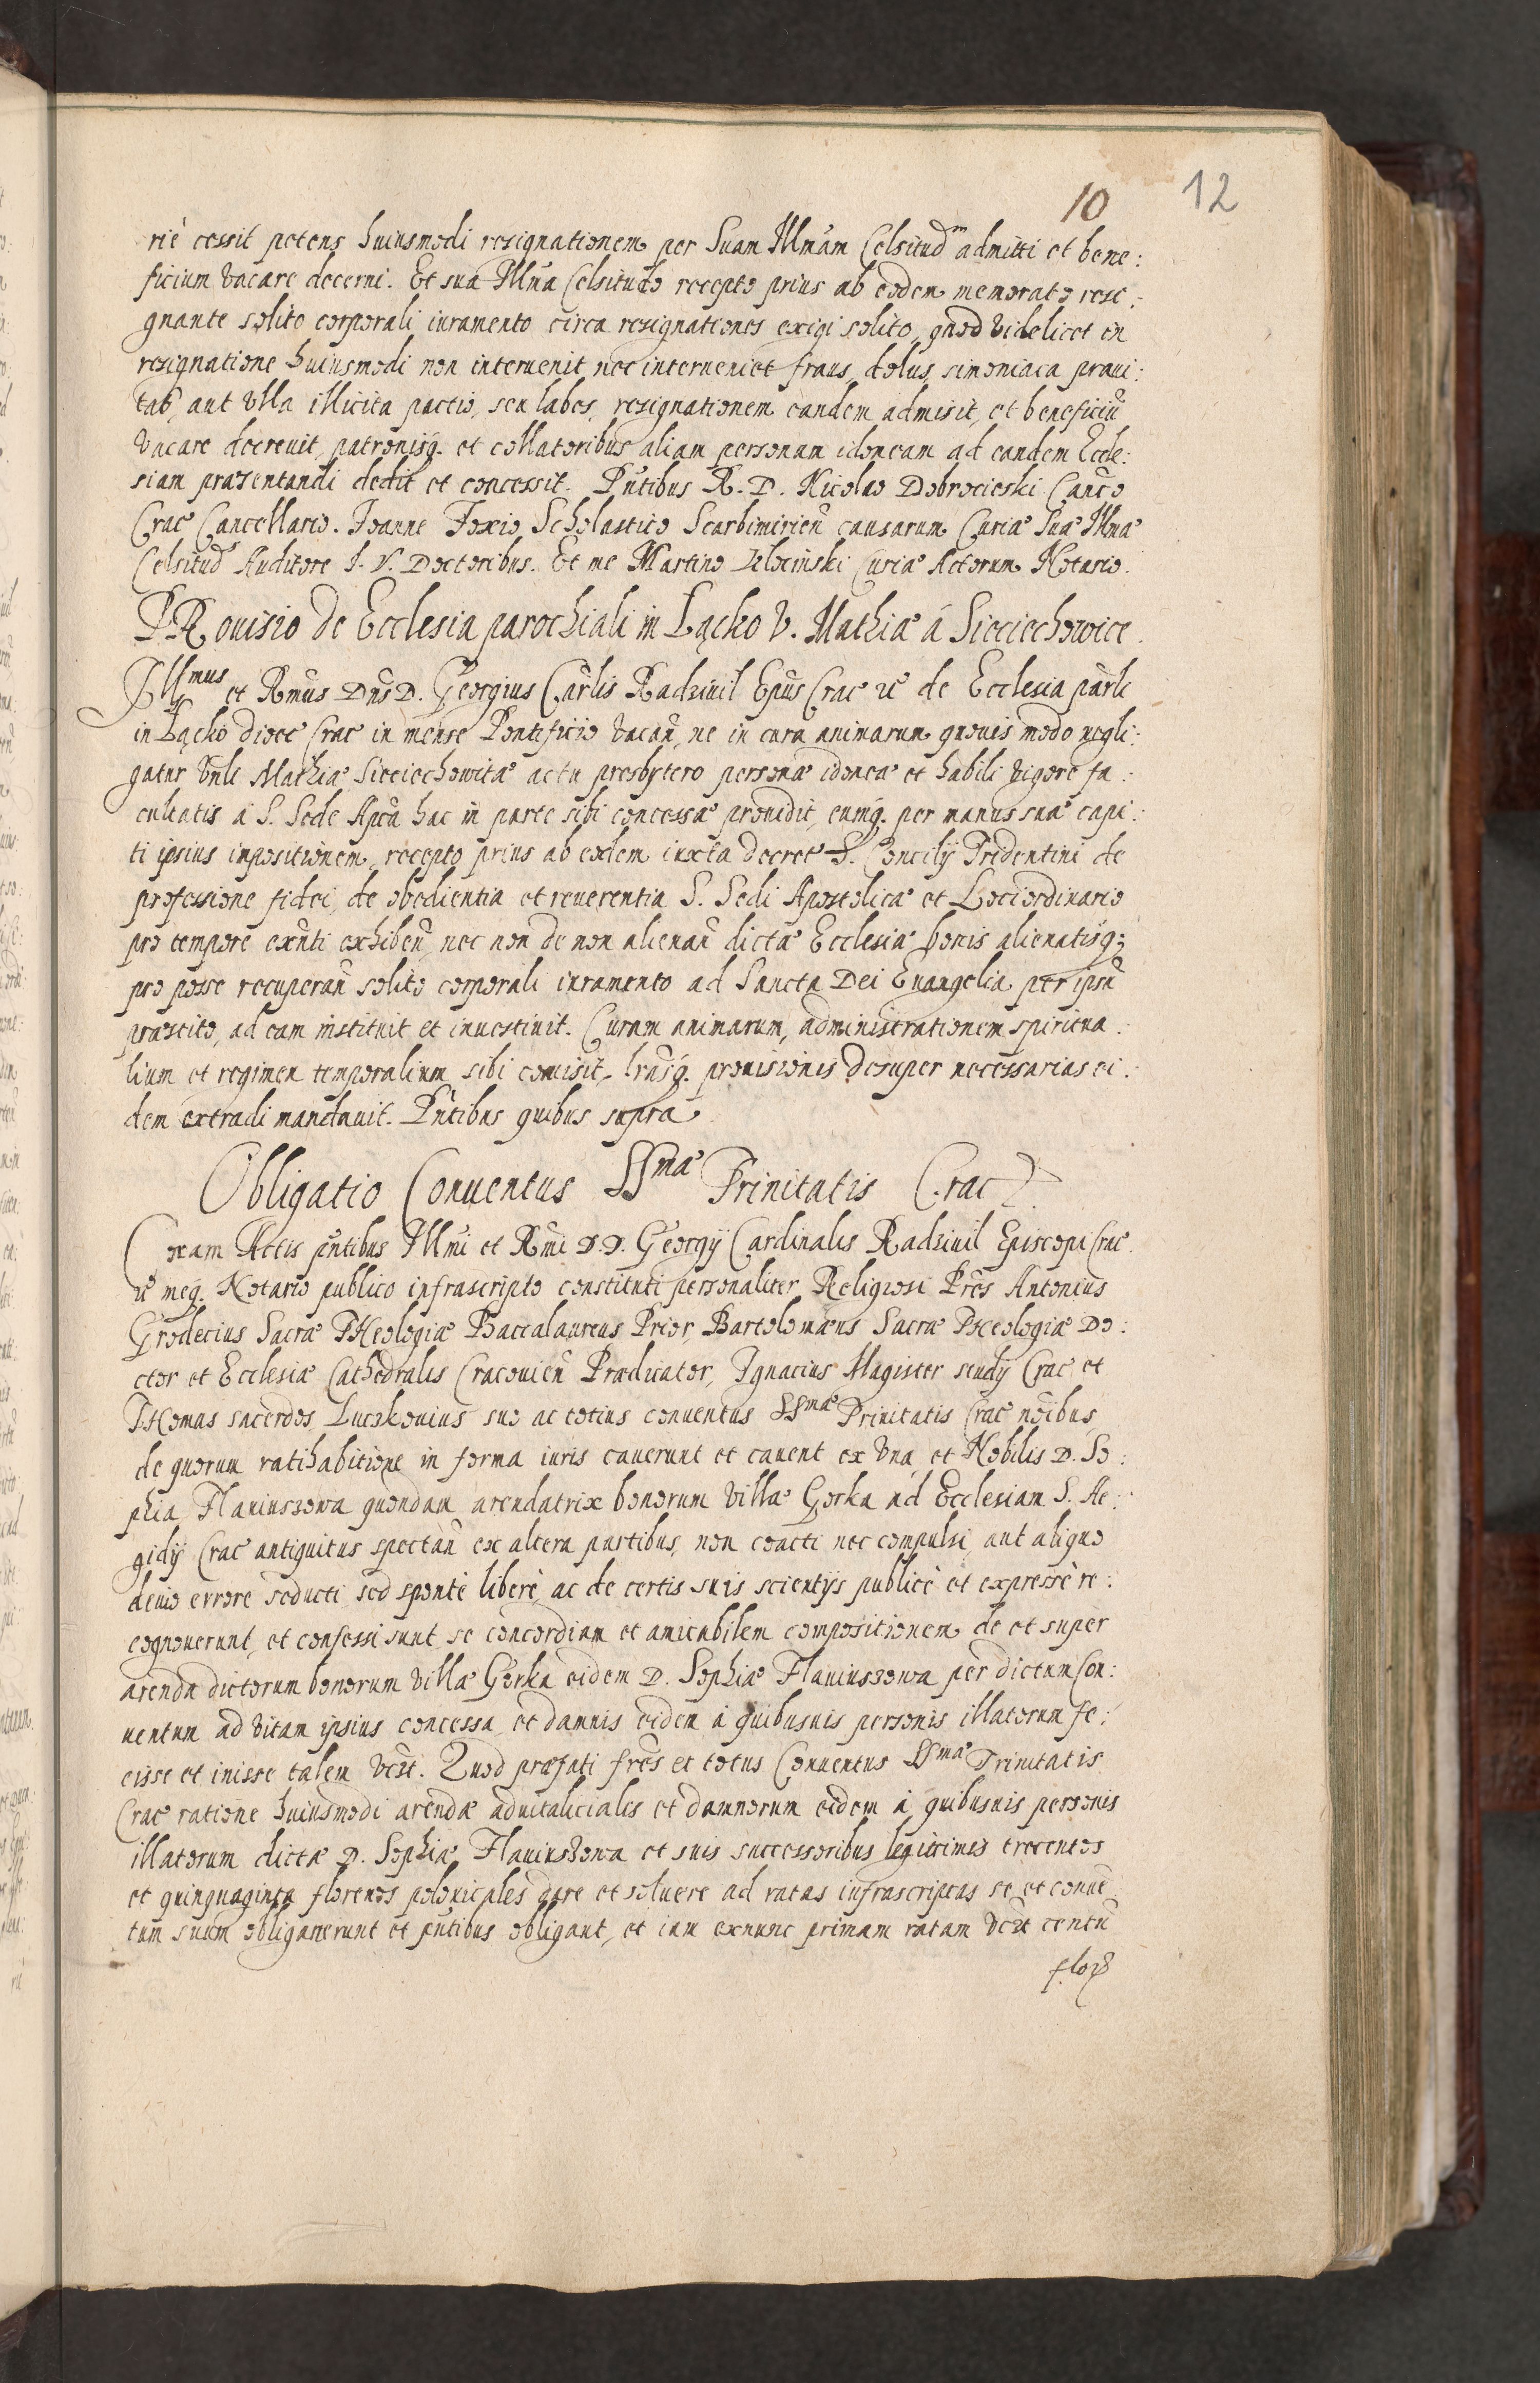 10 12
riè cessit petens huiusmodi resignationem per Suam Illmam Celsitud^m admitti et bene:
ficium vacare decerni. Et sua Illma Celsitudo recepto prius ab eodem memorato resi:
gnante solito corporali iuramento circa resignationes exigi solito, quod videlicet in
resignatione huiusmodi non interuenit nec interueniet fraus, dolus, simoniaca praui:
tas, aut vlla illicita pactio, seu labes, resignationem eandem admisit, et beneficiũ
vacare decreuit, patronisq. et collatoribus aliam personam idoneam ad eandem Eccle:
siam præsentandi dedit et concessit. Pñtibus R. D. Nicolao Dobrocieski Canco
Crac Cancellario. Joanne Foxio Scholastico Scarbimirień causarum Curiæ Suæ Illmæ
Celsitud Auditore J. V. Doctoribus. Et me Martino Izbinski Curiæ Actorum Notario.
PRouisio de Ecclesia parochiali in Łącko V. Mathiæ á Sieciechowice.
Illmus et Rmus Dñs D. Georgius Carlis Radziuil Epus Crac æ de Ecclesia parli
in Łącko dioec Crac in mense Pontificio vacań, ne in cura animarum quouis modo negli:
gatur Vnli Mathiæ Sieciechowitæ actu presbytero personæ idoneæ et habili vigore fa:
cultatis á S. Sede Apca hac in parte sibi concessæ prouidit, eumq. per manus suæ capi:
ti ipsius impositionem, recepto prius ab eodem iuxta decret S. Concilij Tridentini de
professione fidei, de obedientia et reuerentia S. Sedi Apostolicæ et Lociordinario
pro tempore exñti exhibeń, nec non de non alienań dictæ Ecclesiæ bonis alienatisq;
pro posse recuperań solito corporali iuramento ad Sancta Dei Euangelia per ipsũ
præstito, ad eam instituit et inuestiuit. Curam animarum, administrationem spiritua:
lium et regimen temporalium sibi comisit, lrasq. prouisionis desuper necessarias ei:
dem extradi mandauit. Pñtibus quibus supra
Obligatio Conuentus SSmæ Trinitatis Crac
Coram Actis pñtibus Illmi et Rmi D.D. Georgij Cardinalis Radziuil Episcopi Crac.
æ meq. Notario publico infrascripto constituti personaliter Religiosi Pres Antonius
Grodecius Sacræ THeologiæ Baccalaureus Prior, Bartolomæus Sacræ THeologiæ Do:
ctor et Ecclesiæ Cathedralis Cracouień Prædicator, Ignacius Magister studij Crac et
THomas sacerdos Lucskouius suo ac totius conuentus SSmæ Trinitatis Crac noibus,
de quorum ratihabitione in forma iuris cauerunt et cauent ex vna, et Nobilis D. So:
phia Flauiuszowa quondam arendatrix bonorum villæ Gorka ad Ecclesiam S. Ae:
gidij Crac antiquitus spectań ex altera partibus, non coacti nec compulsi, aut aliquo
deuio errore seducti sed spontè liberè, ac de certis suis scientijs publicè et expressè re:
cognouerunt, et confessi sunt, se concordiam et amicabilem compositionem de et super
arenda dictorum bonorum villæ Gorka eidem D. Sophiæ Flauiuszowa per dictum Con:
uentum ad vitam ipsius concessa et damnis eidem á quibusuis personis illatorum fe:
cisse et inisse talem vczt. Quod præfati fres et totus Conuentus SSmæ Trinitatis
Crac ratione huiusmodi arendæ aduitalicialis et damnorum eidem á quibusuis personis
illatorum dictæ D. Sophiæ Flauiuszowa et suis successoribus legittimis trecentos
et quinquaginta florenos polonicales dare et soluere ad ratas infrascriptas se et conuē
tum suum obligauerunt et pñtibus obligant, et iam exnunc primam ratam vczt centũ
flor